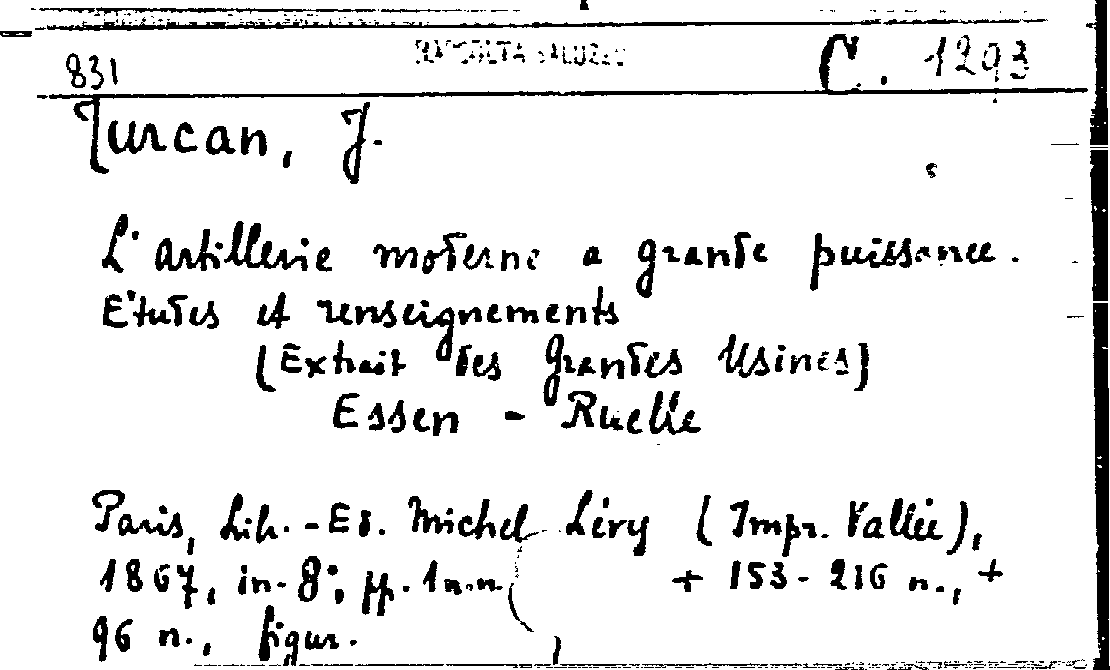 RACCOLTA SALUZZO
831 C. 1293
Turcan, J.
L'artillerie moderne a grande puissance.
Etudes et renseignements
(Extrait des Grandes Usines)
Essen - Ruelle
Paris, Lib.-Ed. Michel Lévy (Impr. Vallée),
1867, in-8°, pp. 1 n.n. + 153-216 n., +
96 n., figur.